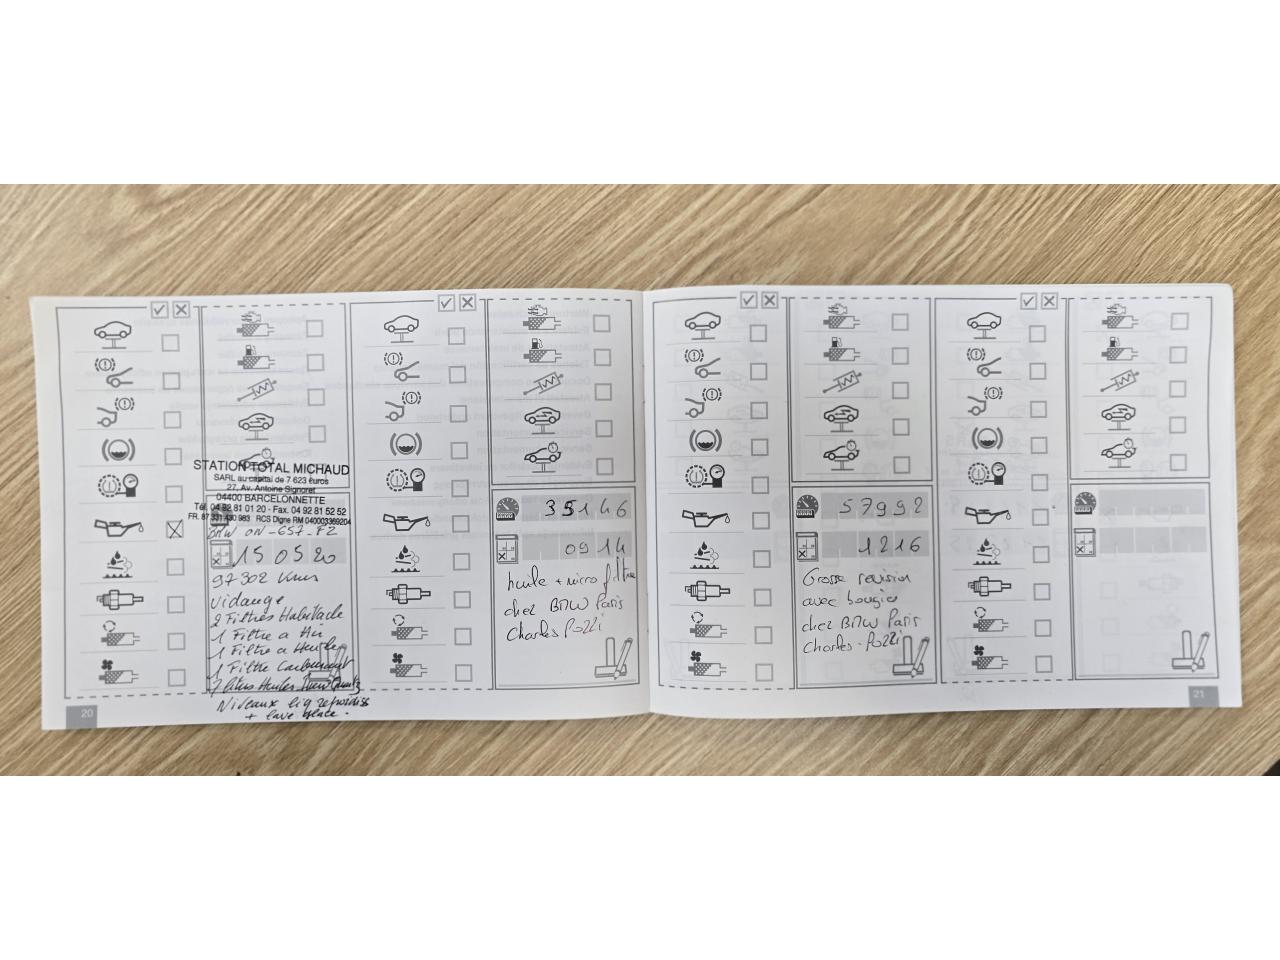 STATION TOTAL MICHAUD
SARL au capital de 7 623 euros
27, Av. Antoine Signoret
04400 BARCELONNETTE
Tél. 04 92 81 01 20 - Fax. 04 92 81 52 52
FR. 87 331 430 983 RCS Digne RM 040003369204
BMW ON-657-FZ
15 05 20
97302 Kms
Vidange
2 Filtres Habitacle
1 Filtre a Air
1 Filtre a Huile
1 Filtre Carburant
7 litres Huiles Quartz
Niveaux liq refroidiss
+ lave glace.
20
35146
0914
huile + micro filtre
chez BMW Paris
Charles Pozzi
57992
1216
Grosse revision
avec bougies
chez BMW Paris
Charles-Pozzi
21